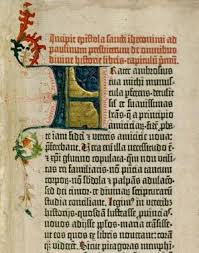 Incipit epistola sancti iheronimi ad
paulinum presbiterum de omnibus
divine historie libris capitulū p̄mū.
Frater ambrosius
tua michi munus-
cula perferens detu-
lit sīl et suavissimas
lr̄as q̄ a principio
amiciciaȝ fidē
te iam fidei et veteris amicicie nova
p̄ferebant. Vera eni illa necessitudo ē
et xp̄i glutino copulata qm̄ non utili-
tas rei familiaris nō p̄ntia tantum
corpoȝ nō sb̄dola et palpās adulacō
sed dei timor et divinaȝ scripturaȝ
studia conciliant. Legim⁹ in veterib⁹
historijs quosdā lustrasse puincias
novos adijsse pp̄los maria trāsisse
ut eos quos ex libris noverant corā
qȝ viderēt. Sicut pitagoras memphi-